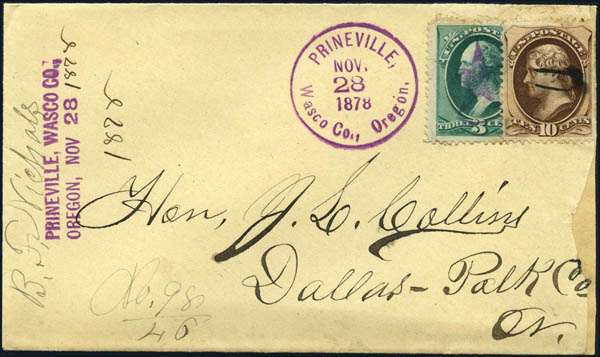 PRINEVILLE,
NOV.
28
1878
Wasco Co., Oregon.
U.S. POSTAGE
THREE 3 CENTS
U.S. POSTAGE
TEN 10 CENTS
B. F. Nichols
PRINEVILLE, WASCO CO.,
OREGON, NOV 28 1878
1878
Hon, J. L. Collins
Dallas - Polk Co
Or.
No. 98
46